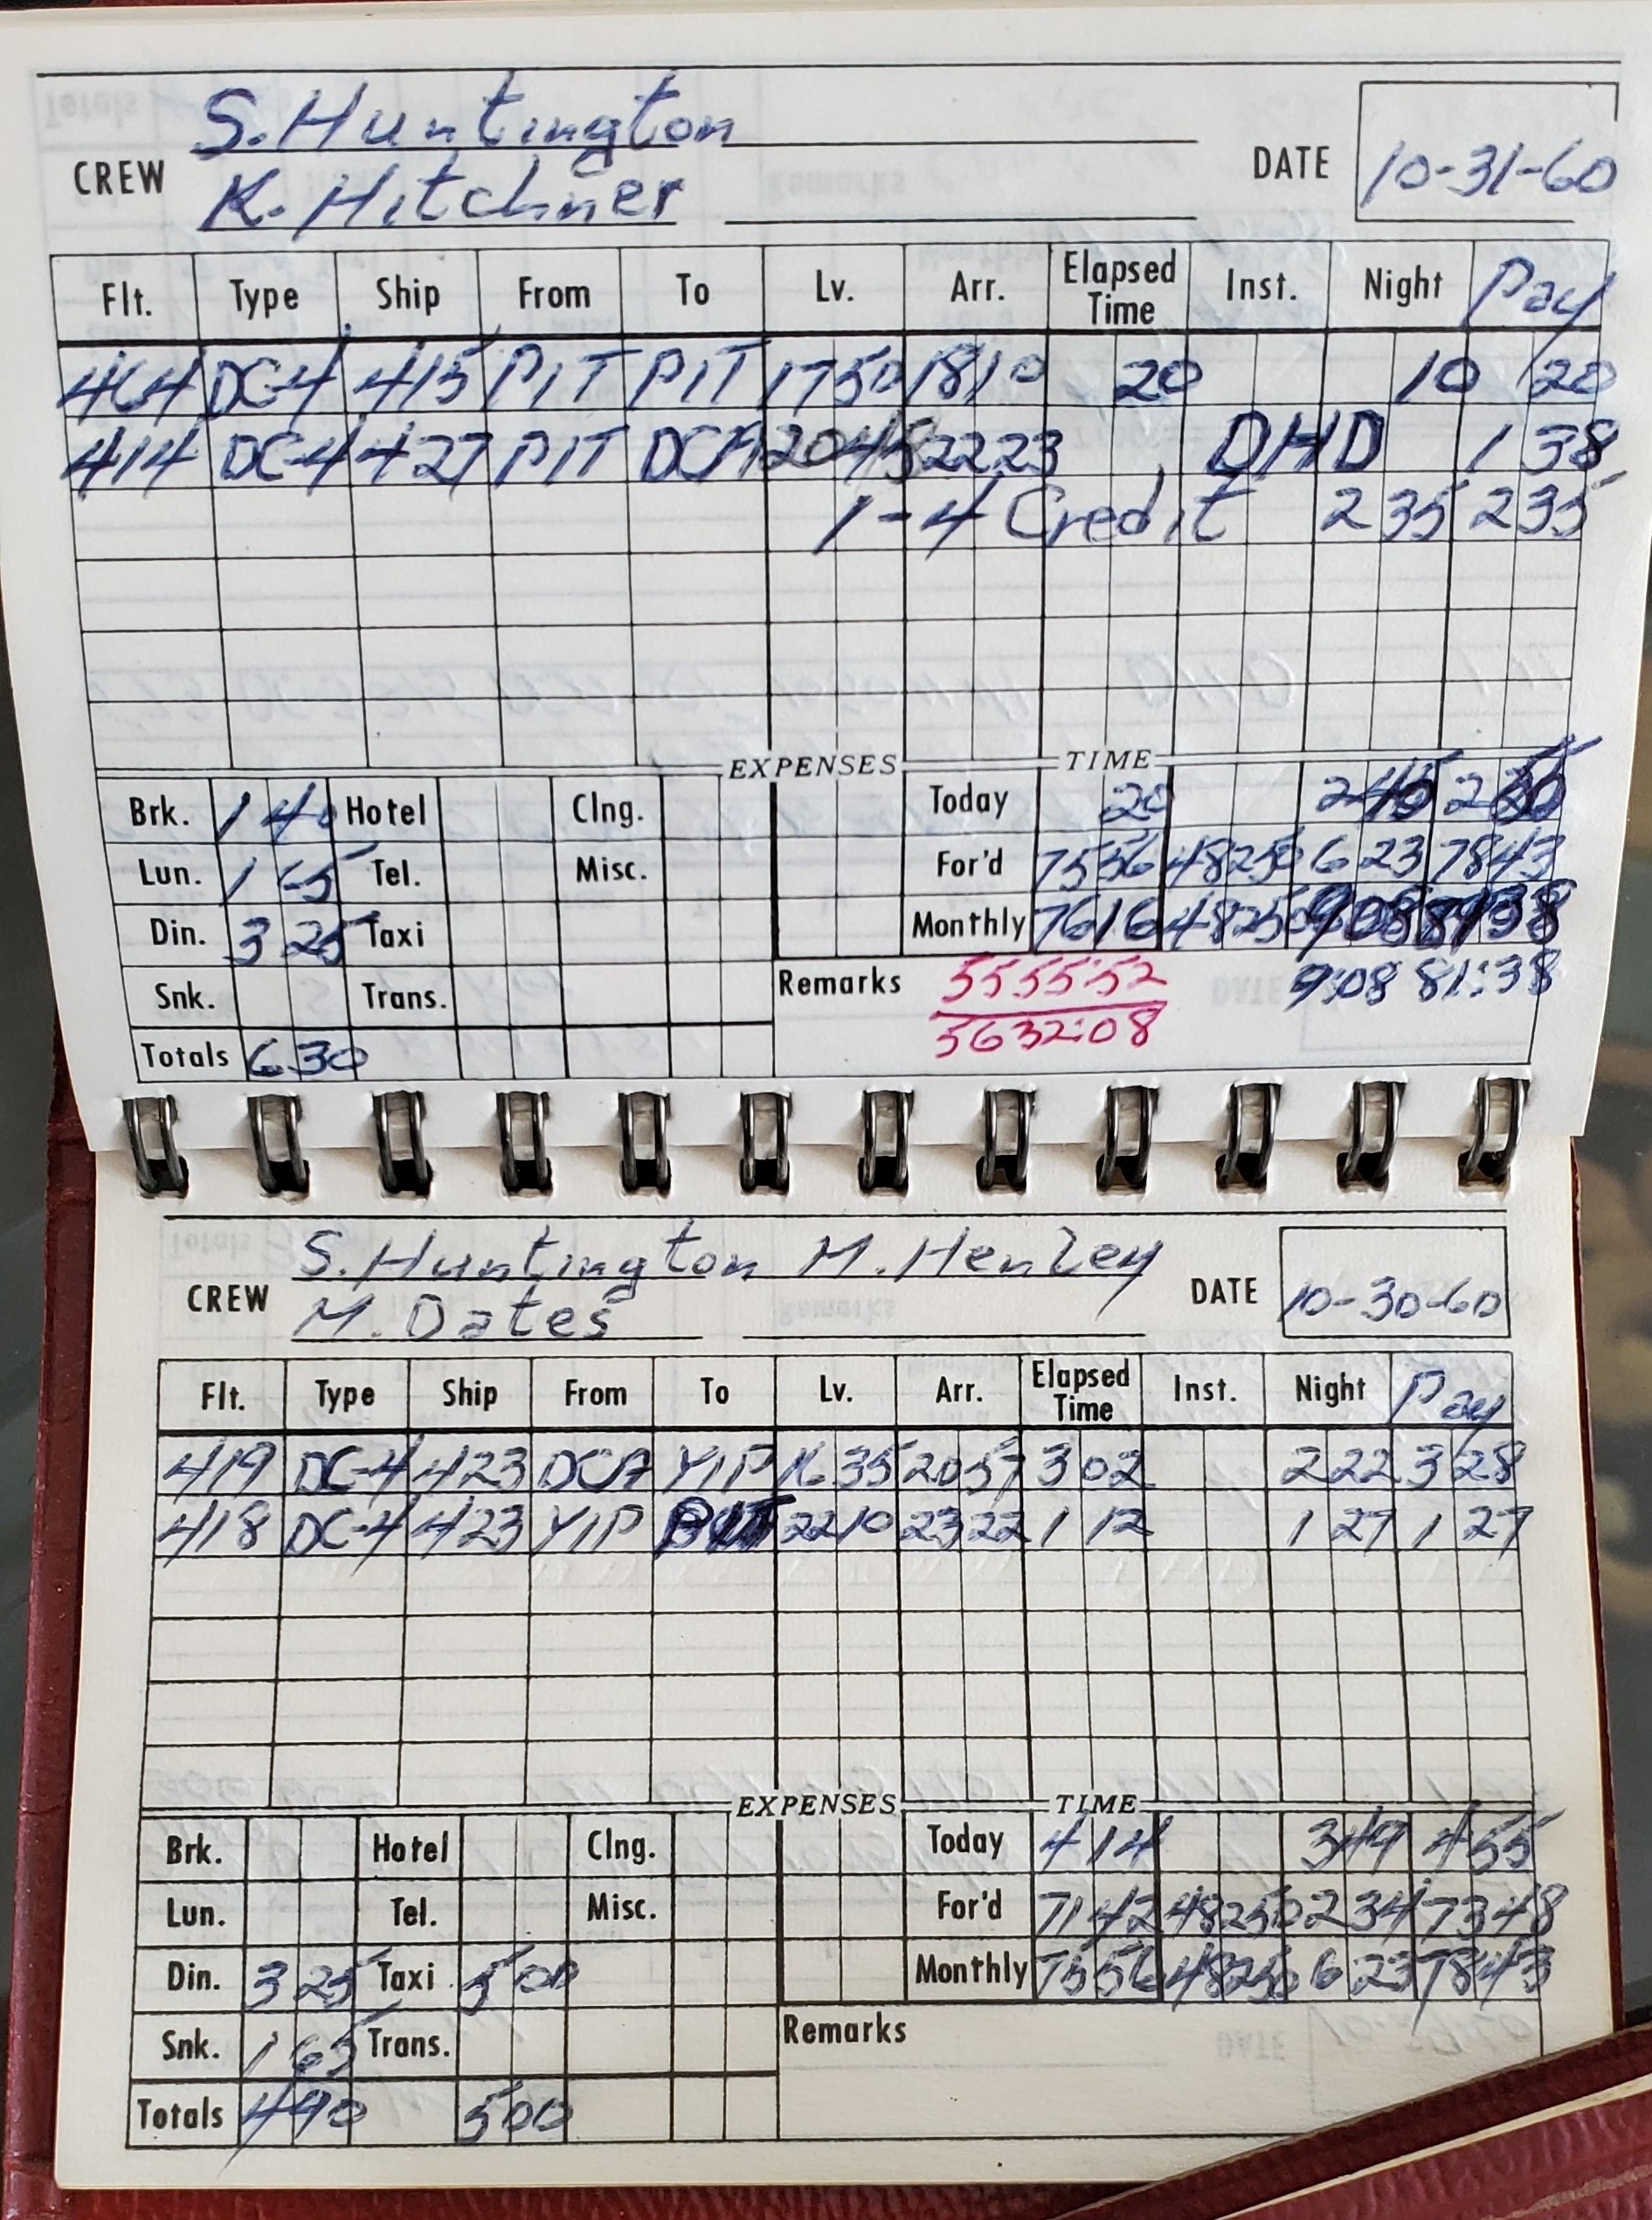 S. Huntington
CREW K. Hitchner DATE 10-31-60
Flt. Type Ship From To Lv. Arr. Elapsed Time Inst. Night Pay
464 DC-4 415 PIT PIT 1750 1810 20 10 20
414 DC-4 427 PIT DCA 2045 2223 DHD 1 38
1-4 Credit 2 35 2 35
EXPENSES TIME
Brk. 1 40 Hotel Clng. Today 20 2 45 2
Lun. 1 65 Tel. Misc. For'd 75 56 48250 6 23 78 43
Din. 3 25 Taxi Monthly 76 16 48250 9 08
Snk. Trans. Remarks 5555:52 9:08 81:38
Totals 6 30 5632:08
S. Huntington M. Henley
CREW M. Oates DATE 10-30-60
Flt. Type Ship From To Lv. Arr. Elapsed Time Inst. Night Pay
419 DC-4 423 DCA YIP 16 35 20 57 3 02 2 22 3 28
418 DC-4 423 YIP 22 10 23 22 1 12 1 27 1 27
EXPENSES TIME
Brk. Hotel Clng. Today 4 14 3 49 4 55
Lun. Tel. Misc. For'd 71 42 48250 2 34 73 48
Din. 3 25 Taxi 5 00 Monthly 75 56 48250 6 23 78 43
Snk. 1 65 Trans. Remarks
Totals 4 90 5 00